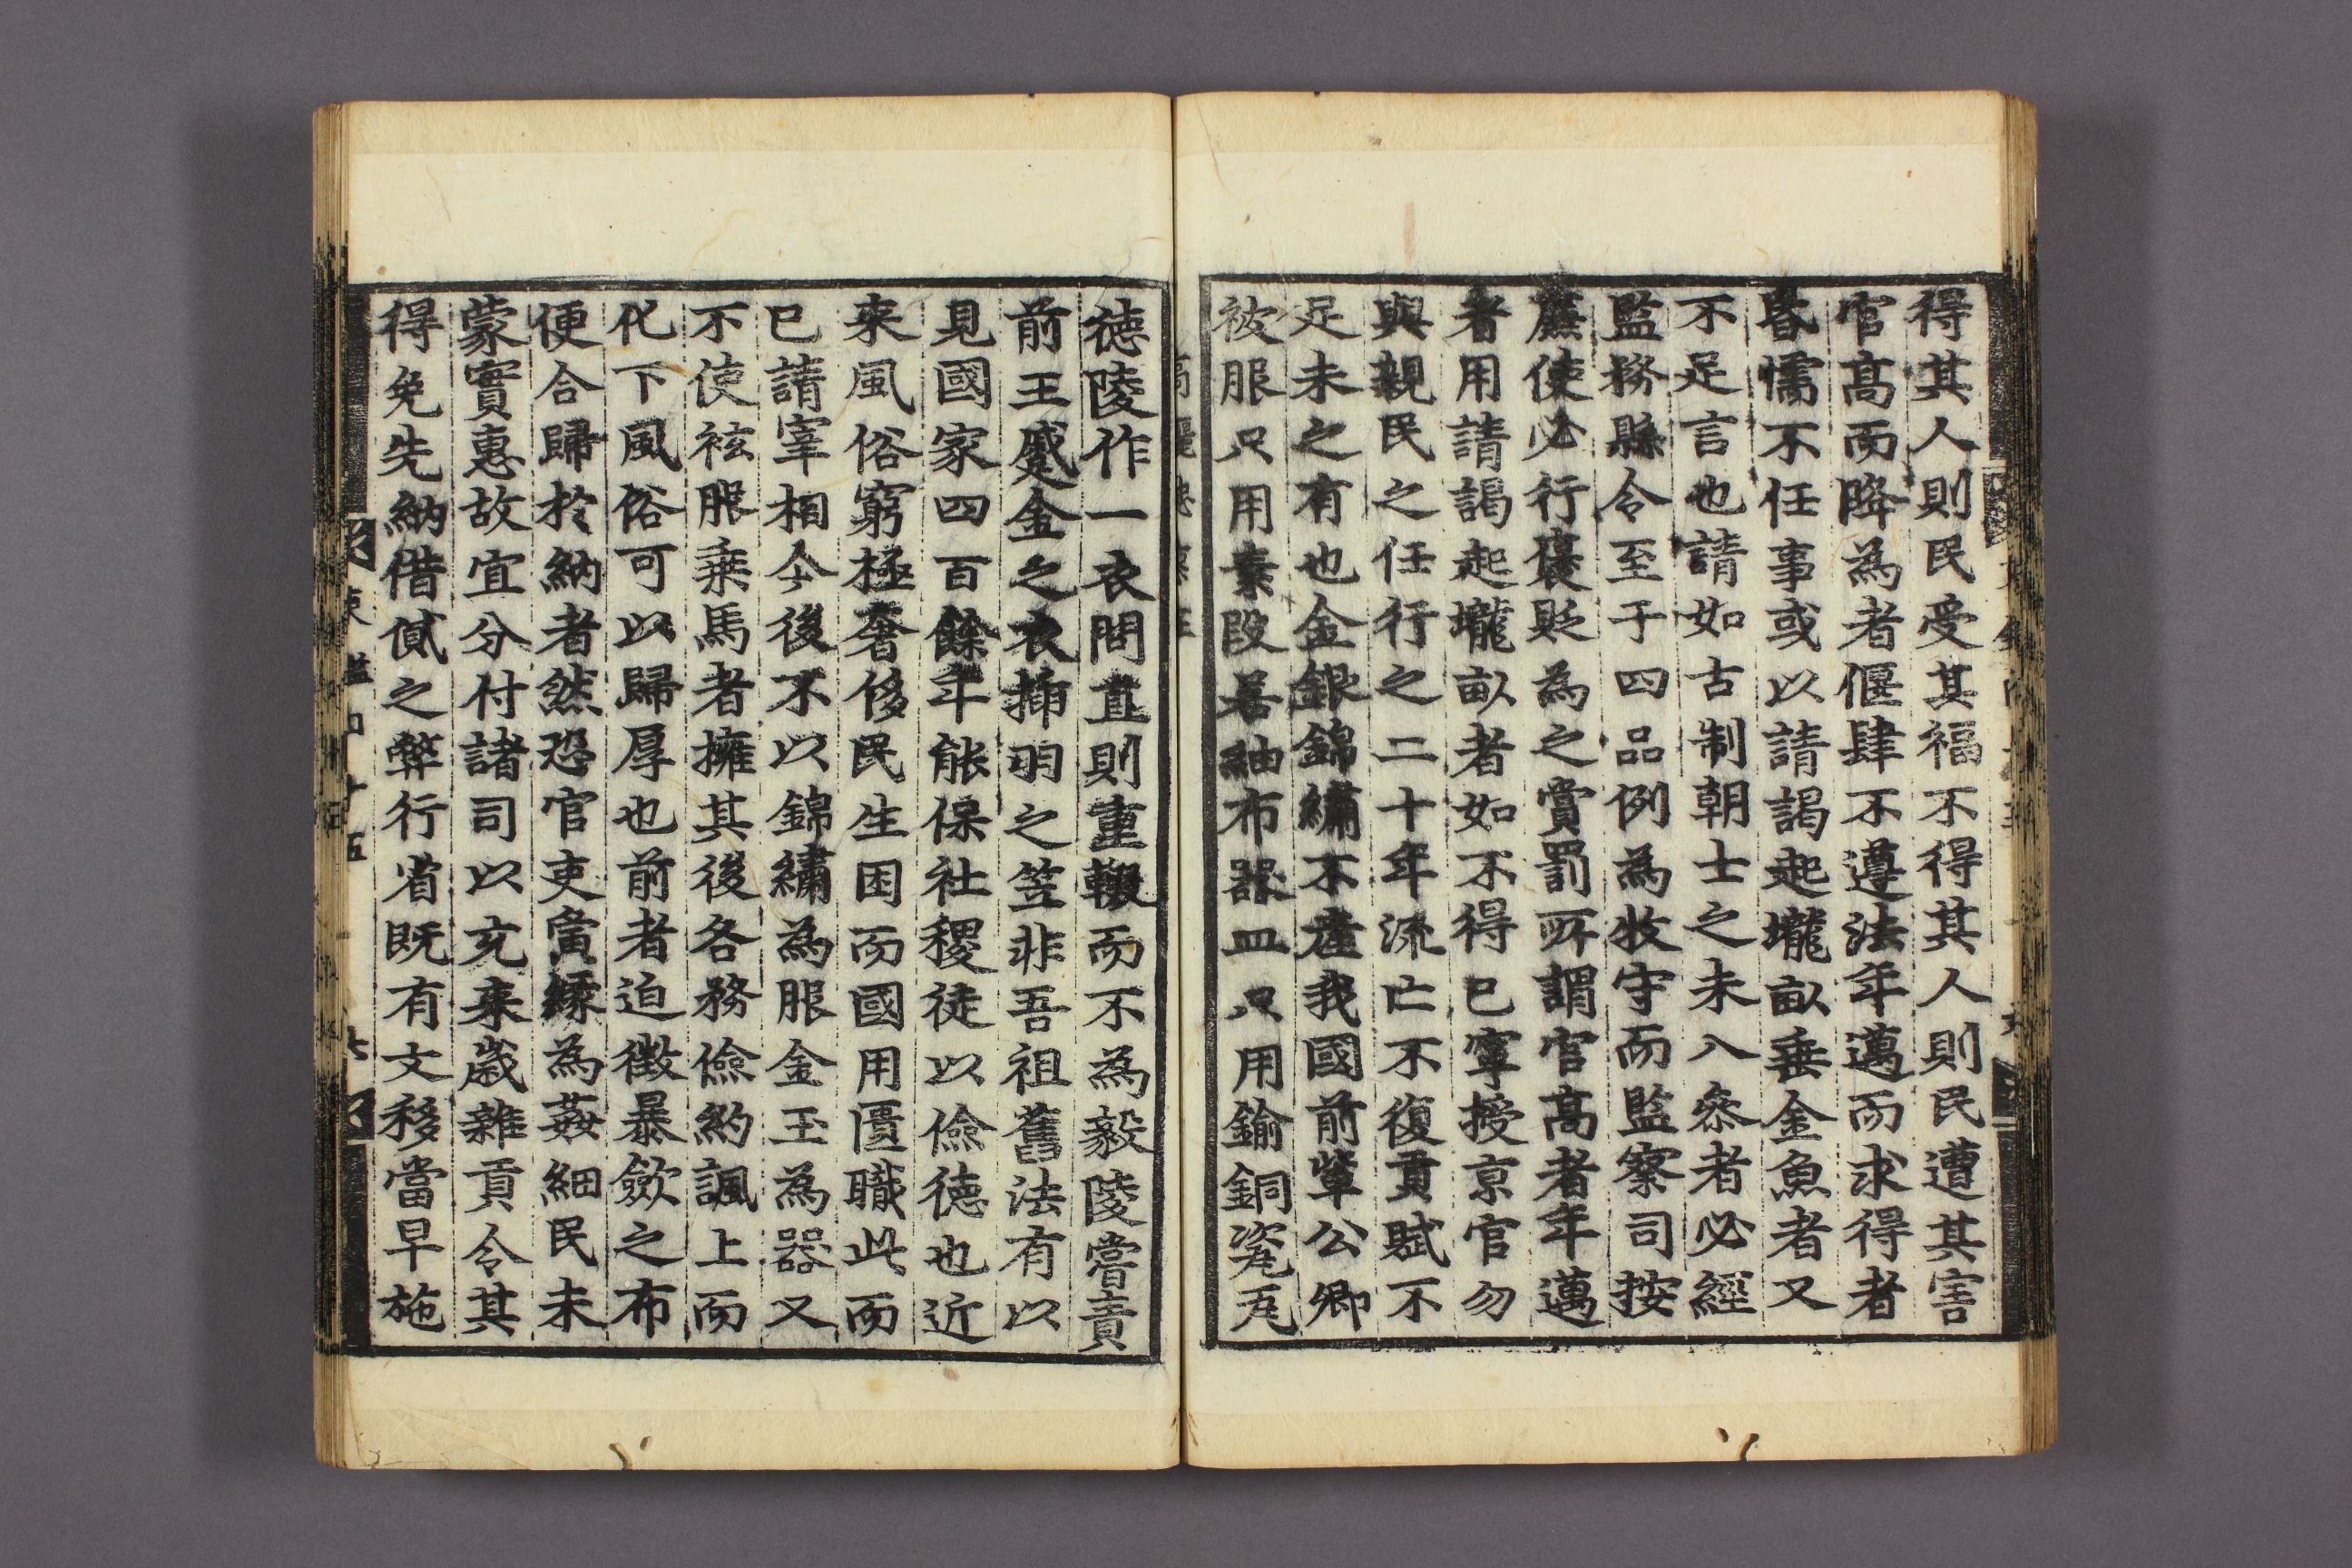 得其人則民受其福不得其人則民遭其害
官高而降為者偃肆不遵法年邁而求得者
昏懦不任事或以請謁起壠畝垂金魚者又
不足言也請如古制朝士之未入叅者必經
監務縣令至于四品例為牧守而監察司按
廉使必行襃貶為之賞罰所謂官高者年邁
者用請謁起壠畝者如不得已寧授京官勿
與親民之任行之二十年流亡不復貢賦不
足未之有也金銀錦繡不產我國前軰公卿
被服只用素段若紬布器皿只用鍮銅瓷瓦
德陵作一衣問直則重輟而不為毅陵嘗責
前王蹙金之衣揷羽之笠非吾祖舊法有以
見國家四百餘年能保社稷徒以儉德也近
来風俗窮極奢侈民生困而國用匱職此而
已請宰相今後不以錦繡為服金玉為器又
不使袨服乗馬者擁其後各務儉約諷上而
化下風俗可以歸厚也前者迫徵暴斂之布
便合歸於納者然恐官吏夤緣為姦細民未
蒙實惠故宜分付諸司以充来歳雜貢令其
得免先納借貣之弊行省既有文移當早施